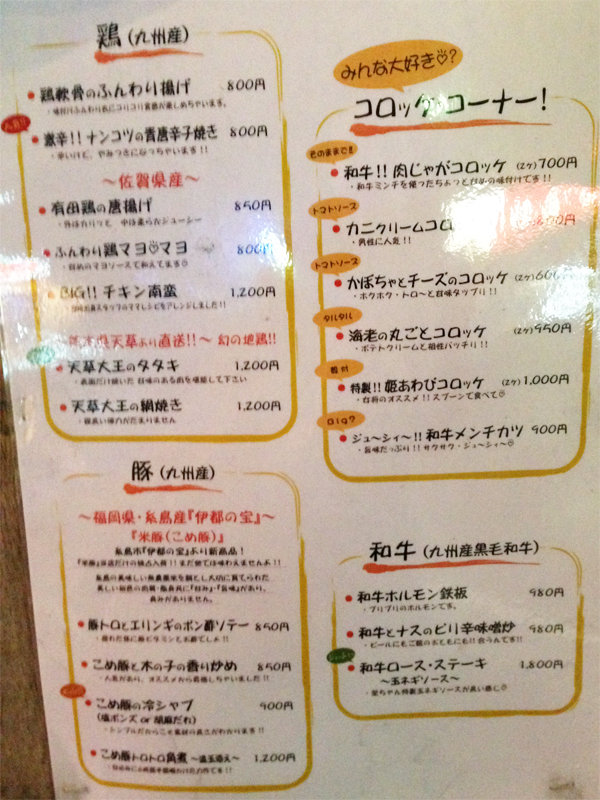 鶏(九州産)
鶏軟骨のふんわり揚げ 800円
激辛!!ナンコツの青唐辛子焼き 800円
・辛いけど、やみつきになっちゃいます!!
〜佐賀県産〜
有田鶏の唐揚げ 850円
・外はカリッと 中は柔らかジューシー
ふんわり鶏マヨ♡マヨ 800円
・自家のマヨソースで和えてます
BIG!!チキン南蛮 1,200円
〜熊本県天草より直送!!〜幻の地鶏!!
天草大王のタタキ 1,200円
天草大王の網焼き 1,200円
・程良い弾力がたまりません
豚(九州産)
〜福岡県・糸島産『伊都の宝』〜
『米豚(こめ豚)』
糸島市『伊都の宝』より新商品!
豚トロとエリンギのポン酢ソテー 850円
こめ豚と木の子の香り炒め 850円
こめ豚の冷シャブ 900円
(塩ポンズ or 胡麻だれ)
・シンプルだからこそ素材の良さがわかります!!
こめ豚トロトロ角煮 〜温玉添え〜 1,200円
みんな大好き♡?
コロッケ・コーナー!
そのままで!!
和牛!!肉じゃがコロッケ (2ケ)700円
・和牛ミンチを使ったちょっと甘めの味付けです!!
トマトソース
カニクリームコロ
・男性に人気!!
トマトソース
かぼちゃとチーズのコロッケ (2ケ)600
・ホクホク・トロ〜と甘味タップリ!!
タルタル
海老の丸ごとコロッケ (2ケ)950円
・ポテトクリームと相性バッチリ!!
特製!!姫あわびコロッケ (2ケ)1,000円
・台将のオススメ!!スプーンで食べて♡
BIG?
ジュ〜シィ〜!!和牛メンチカツ 900円
・旨味たっぷり!!サクサク・ジューシィ〜♡
和牛(九州産黒毛和牛)
和牛ホルモン鉄板 980円
・プリプリのホルモンです。
和牛とナスのピリ辛味噌炒 980円
・ビールにもご飯のおともにも!!合うんです!!
和牛ロース・ステーキ 1,800円
〜玉ネギソース〜
・愛ちゃん特製玉ネギソースが良い感じ♡